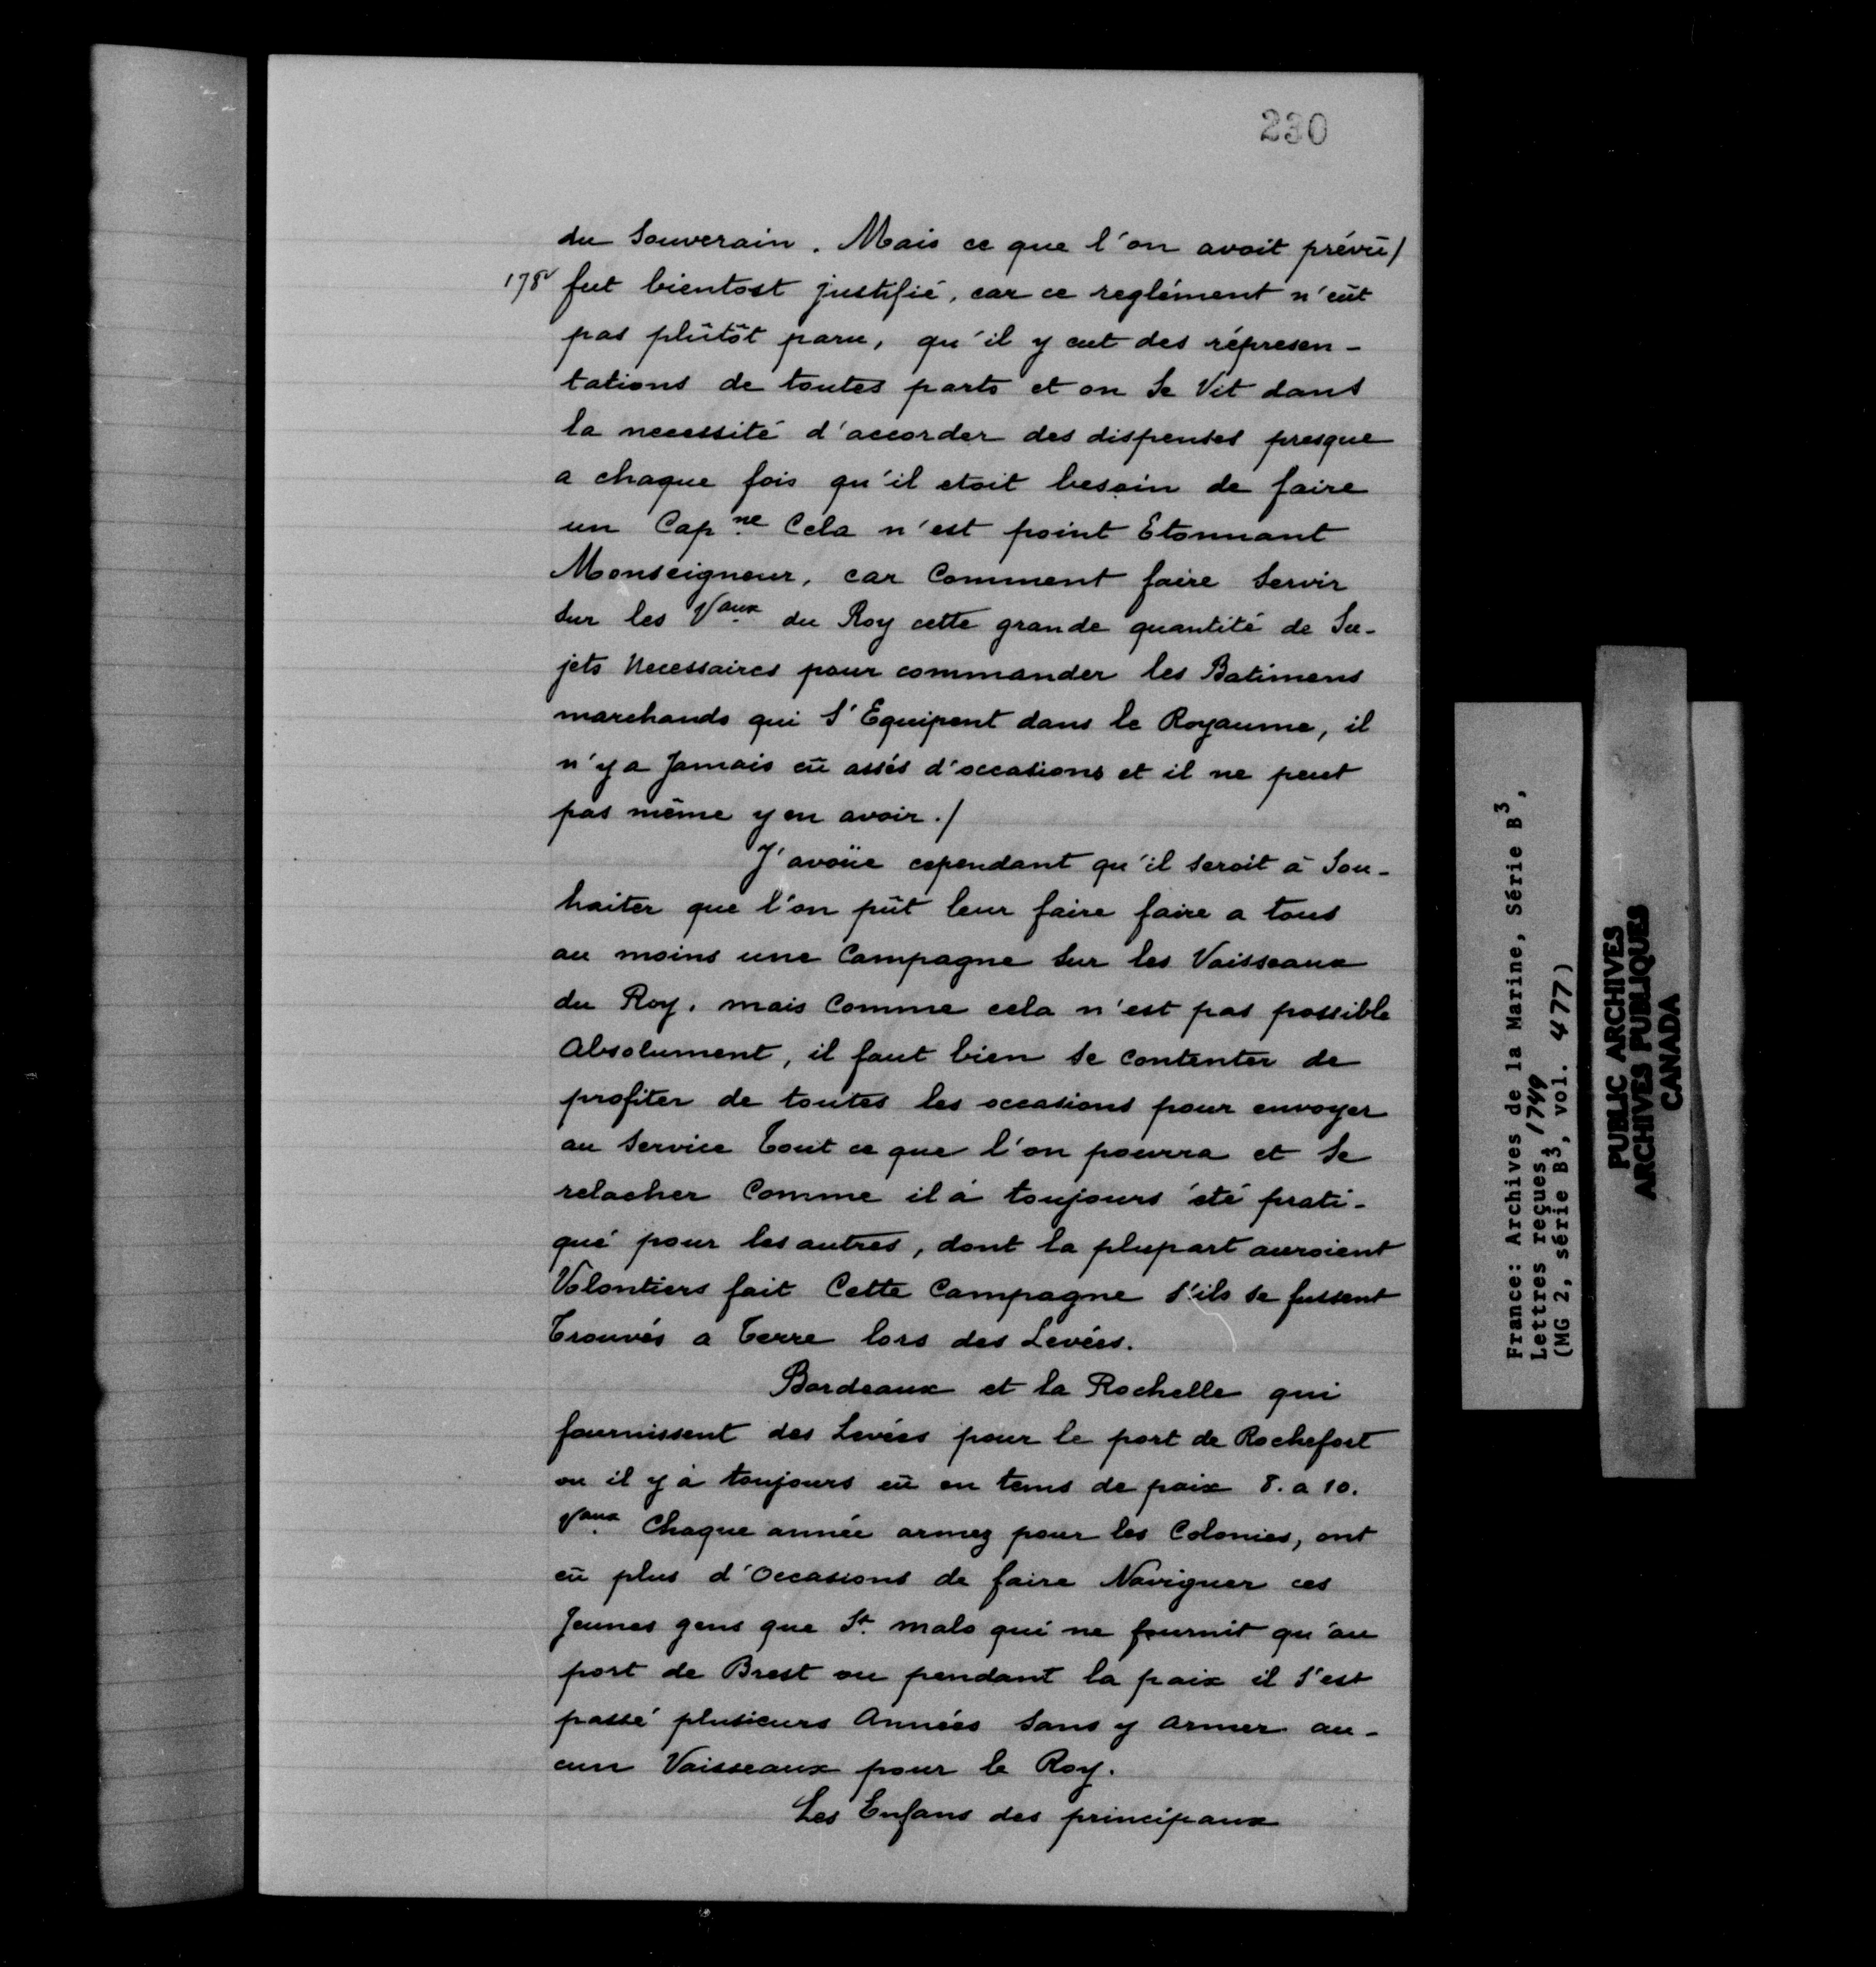 230
du Souverain. Mais ce que l'on avoit prévû/
178v fut bientost justifié, car ce reglément n'eût
pas plûtôt paru, qu'il y eut des répresen-
tations de toutes parts et on Se Vit dans
la necessité d'accorder des dispenses presque
a chaque fois qu'il etoit besoin de faire
un Capne. Cela n'est point Etonnant
Monseigneur, car Comment faire Servir
Sur les Vaux. du Roy cette grande quantité de Su-
jets Necessaires pour commander les Batimens
marchands qui S'Equipent dans le Royaume, il
n'y a Jamais eû assés d'occasions et il ne peut
pas même y en avoir./
J'avoüe cependant qu'il seroit à Sou-
haiter que l'on pût leur faire faire a tous
au moins une Campagne Sur les Vaisseaux
du Roy, mais Comme cela n'est pas possible
Absolument, il faut bien Se Contenter de
profiter de toutes les occasions pour envoyer
au Service Tout ce que l'on pourra et Se
relacher Comme il à toujours été prati-
qué pour les autres, dont la plupart auroient
Volontiers fait Cette Campagne S'ils Se fussent
Trouvés a Terre lors des Levées.
Bordeaux et la Rochelle qui
fournissent des Levées pour le port de Rochefort
ou il y à toujours eû en tems de paix 8. a 10.
Vaux. Chaque année armez pour les Colonies, ont
eû plus d'Occasions de faire Naviguer ces
Jeunes gens que St. malo qui ne fournit qu'au
port de Brest ou pendant la paix il S'est
passé plusieurs Années Sans y Armer au-
cun Vaisseaux pour le Roy.
Les Enfans des principaux
France: Archives de la Marine, Série B3,
Lettres reçues, 1749
(MG 2, série B3, vol. 477)
PUBLIC ARCHIVES
ARCHIVES PUBLIQUES
CANADA